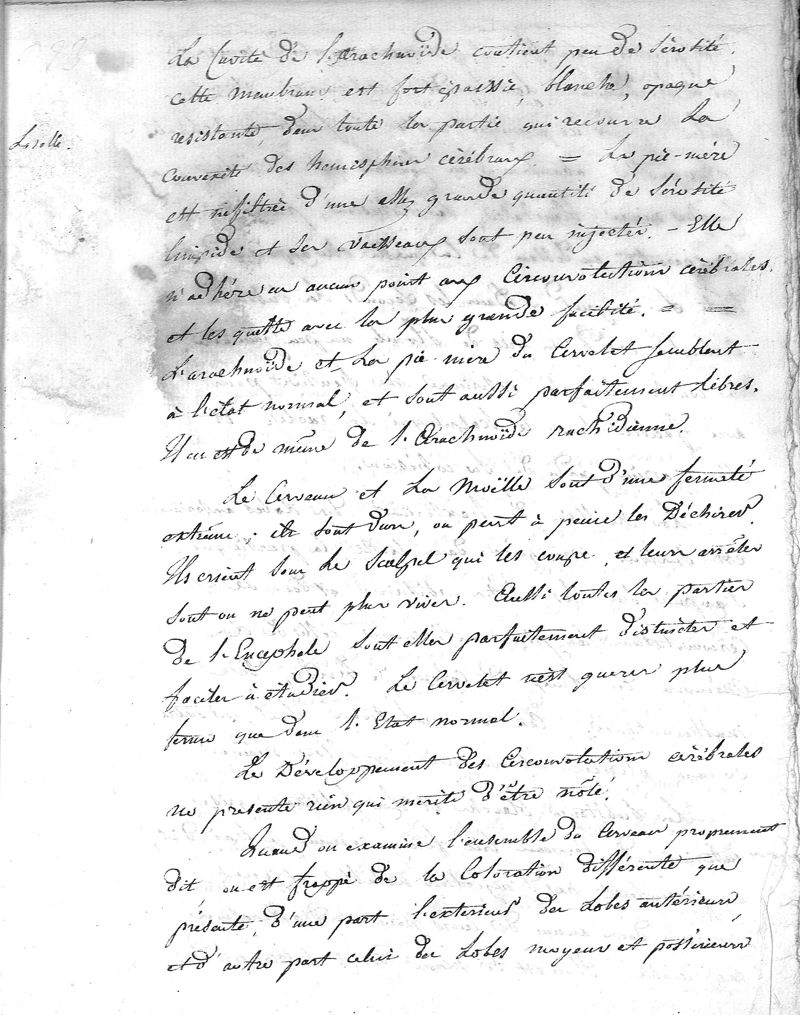 La Cavité de l'arachnoïde contient peu de sérosité.
cette membrane est fort épaissie, blanche, opaque
resistante, dans toute la partie qui recouvre La
Convexité des hemispheres cérébraux. = La pie-mère
est infiltrée d'une assez grande quantité de sérosité
limpide et ses vaisseaux sont peu injectés. - Elle
n'adhére en aucun point aux Circonvolutions cérébrales.
et les quitte avec la plus grande facilité. = =
L'arachnoïde et La pie-mère du Cervelet semblent
à l'état normal, et sont aussi parfaitement libres.
Il en est de même de l'Arachnoïde rachidienne.
Le Cerveau et La Moëlle sont d'une fermeté
extrême; ils sont durs, on peut à peine les Déchirer.
Ils crient sous Le Scalpel qui les coupe, et leurs arrêtes
sont on ne peut plus vives. Aussi toutes les parties
de l'Encephale sont elles parfaitement distinctes et
faciles à étudier. Le Cervelet n'est gueres plus
ferme que dans l'Etat normal.
Le Développement des Circonvolutions cérébrales
ne presente rien qui mérite d'être nôté.
Quand on examine l'ensemble du Cerveau proprement
dit, on est frappé de la Coloration différente que
présente, d'une part l'exterieur des Lobes antérieurs
et d'autre part celui des Lobes moyens et postérieurs